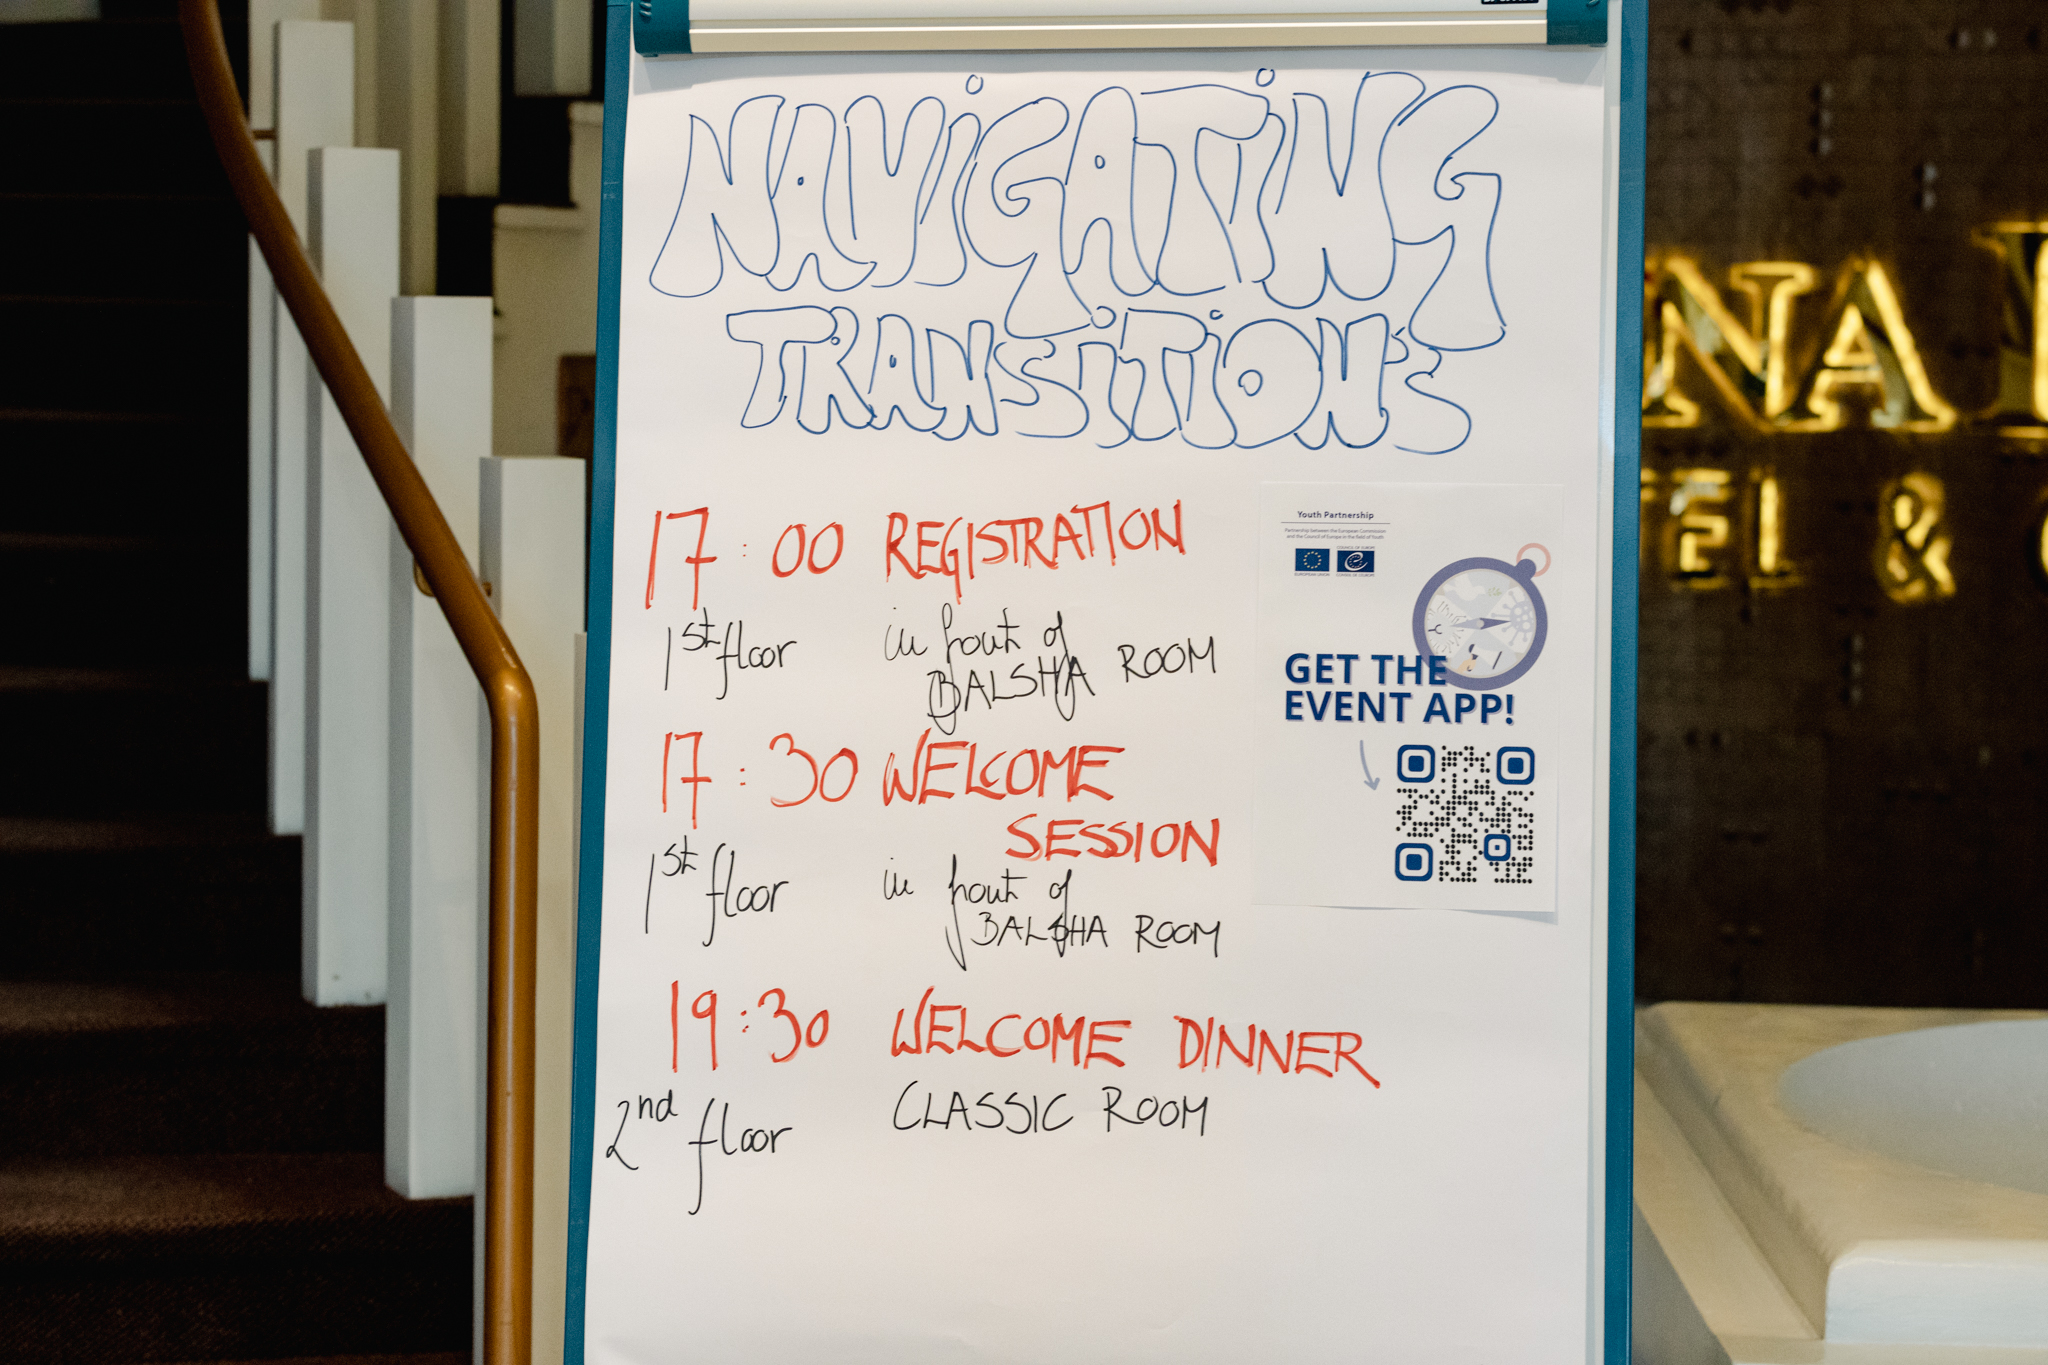 NAViGATiNG
TRANSiTiON'S
17:00 REGISTRATION
1st floor in front of
BALSHA ROOM
17:30 WELCOME
SESSION
1st floor in front of
BALSHA ROOM
19:30 WELCOME DINNER
2nd floor CLASSIC ROOM
Youth Partnership
Partnership between the European Commission
and the Council of Europe in the field of Youth
EUROPEAN UNION
COUNCIL OF EUROPE
GET THE
EVENT APP!
NA
EL &